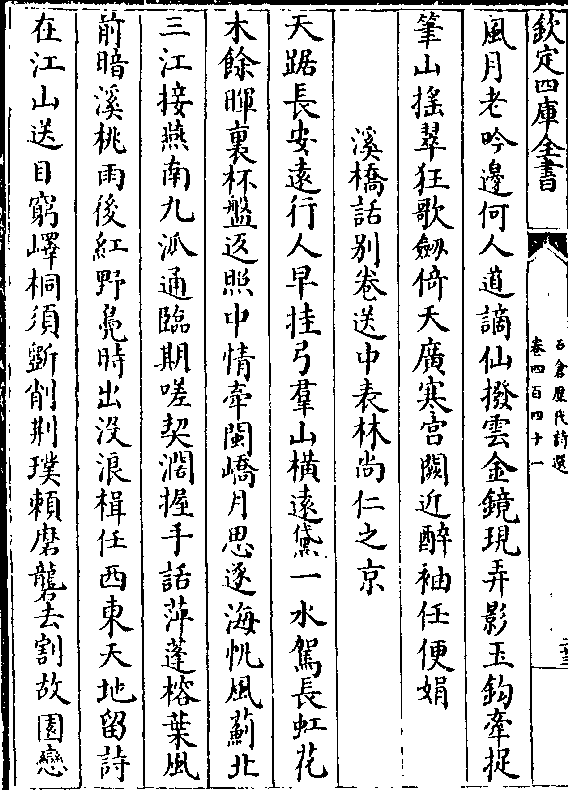 欽定四庫全書
石倉歷代詩選
卷四百四十一
風月老吟邊何人道謫仙撥雲金鏡現弄影玉鈎牽捉
筆山搖翠狂歌劔倚天廣寒宫闕近醉袖任便娟
溪橋話别卷送中表林尚仁之京
天踞長安遠行人早挂弓羣山横遠黛一水駕長虹花
木餘暉裏杯盤返照中情牽閩嶠月思逐海帆風薊北
三江接燕南九派通臨期嗟契濶握手話萍蓬榕葉風
前暗溪桃雨後紅野鳬時出没浪楫任西東天地留詩
在江山送目窮嶧桐須斵削荆璞頼磨礱去割故園戀